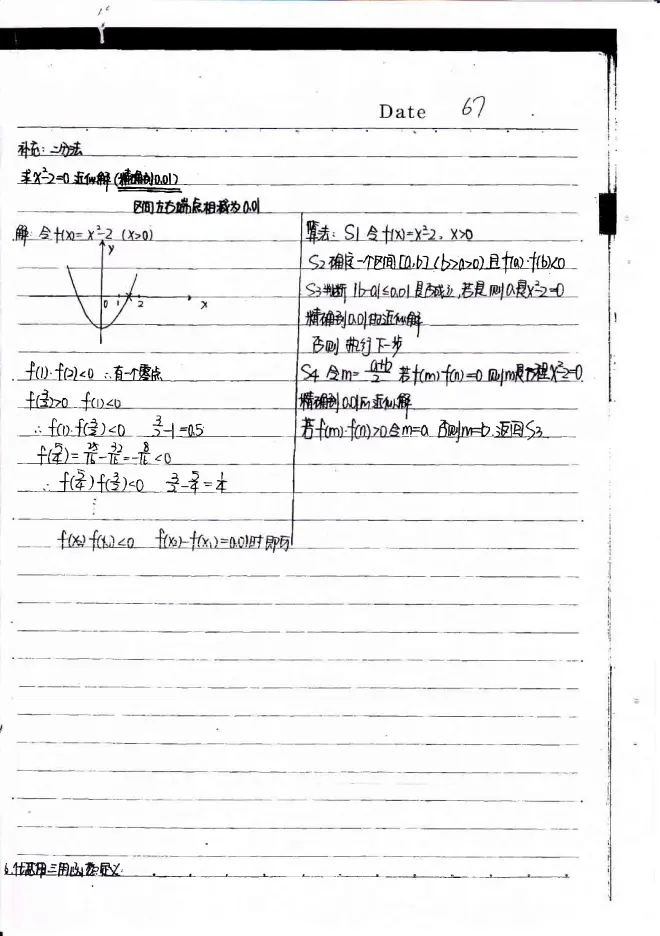 Date 67
补充：二分法
求x²-2=0近似解（精确到0.01）
区间左右端点相减为0.01
解：令f(x)=x²-2 (x>0)
y
0 1 2 x
f(1)·f(2)<0 ∴有一个零点
f(3/2)>0 f(1)<0
∴ f(1)·f(3/2)<0 3/2-1=0.5
f(5/4)=25/16-32/16=-8/16<0
∴ f(5/4)f(3/2)<0 3/2-5/4=1/4
⋮
f(x₂)·f(x₁)<0 f(x₂)-f(x₁)=0.01时即可
算法：S1 令f(x)=x²-2，x>0
S2 确定一个区间[a,b]（b>a>0）且f(a)·f(b)<0
S3 判断|b-a|≤0.01是否成立，若是则a是x²-2=0
精确到0.01的近似解
否则 执行下一步
S4 令m=(a+b)/2 若f(m)·f(a)=0则m是方程x²-2=0
精确到0.01的近似解
若f(m)·f(a)>0令m=a 否则m=b 返回S3